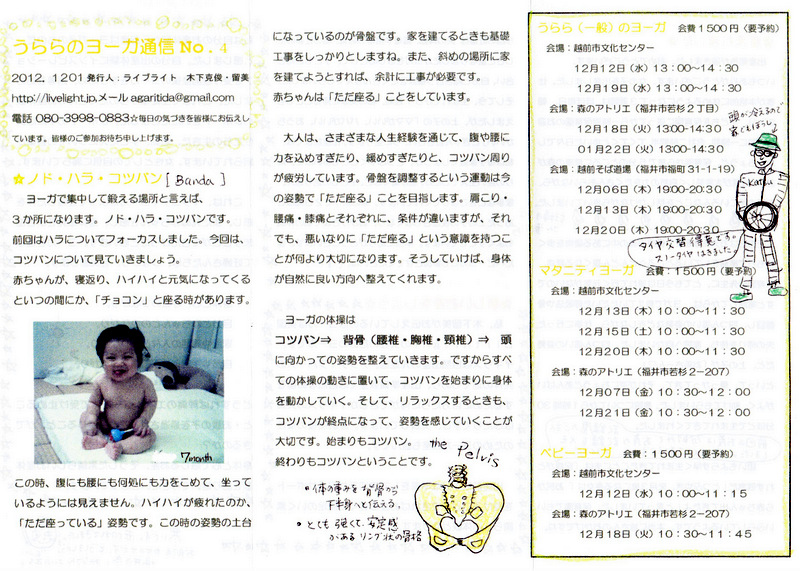 うららのヨーガ通信 No. 4
2012. 1201 発行人：ライブライト　木下克俊・留美
http://livelight.jp,メール agaritida@gmail.com
電話 080-3998-0883☆毎日の気づきを皆様にお伝えし
ています。皆様のご参加お待ち申し上げます。
☆ノド・ハラ・コツバン [Banda]
ヨーガで集中して鍛える場所と言えば、
３か所になります。ノド・ハラ・コツバンです。
前回はハラについてフォーカスしました。今回は、
コツバンについて見ていきましょう。
赤ちゃんが、寝返り、ハイハイと元気になってくる
といつの間にか、「チョコン」と座る時があります。
7month
この時、腹にも腰にも何処にも力をこめて、坐って
いるようには見えません。ハイハイが疲れたのか、
「ただ座っている」姿勢です。この時の姿勢の土台
になっているのが骨盤です。家を建てるときも基礎
工事をしっかりとしますね。また、斜めの場所に家
を建てようとすれば、余計に工事が必要です。
赤ちゃんは「ただ座る」ことをしています。
大人は、さまざまな人生経験を通じて、腹や腰に
力を込めすぎたり、緩めすぎたりと、コツバン周り
が疲労しています。骨盤を調整するという運動は今
の姿勢で「ただ座る」ことを目指します。肩こり・
腰痛・膝痛とそれぞれに、条件が違いますが、それ
でも、悪いなりに「ただ座る」という意識を持つこ
とが何より大切になります。そうしていけば、身体
が自然に良い方向へ整えてくれます。
ヨーガの体操は
コツバン⇒　背骨（腰椎・胸椎・頸椎）　⇒　頭
に向かっての姿勢を整えていきます。ですからすべ
ての体操の動きに置いて、コツバンを始まりに身体
を動かしていく。そして、リラックスするときも、
コツバンが終点になって、姿勢を感じていくことが
大切です。始まりもコツバン。
終わりもコツバンということです。
the Pelvis
・体の重みを背骨から
下半身へと伝える。
・とても強くて、安定感
があるリング状の骨格
うらら（一般）のヨーガ　会費１５００円（要予約）
会場：越前市文化センター
12月12日（水）13：00～14：30
12月19日（水）13：00～14：30
会場：森のアトリエ（福井市若杉２丁目）
12月18日（火）13:00-14:30
01月22日（火）13:00-14:30
会場：越前そば道場（福井市福町 31-1-19）
12月06日（木）19:00-20:30
12月13日（木）19:00-20:30
12月20日（木）19:00-20:30
Katsu
タイヤ交換得意です。
スノータイヤはきました。
マタニティヨーガ　会費：１５００円（要予約）
会場：越前市文化センター
12月13日（木）10：00～11：30
12月15日（土）10：00～11：30
12月20日（木）10：00～11：30
会場：森のアトリエ（福井市若杉２−207）
12月07日（金）10：30～12：00
12月21日（金）10：30～12：00
ベビーヨーガ　会費：１５００円（要予約）
会場：越前市文化センター
12月12日（水）10：00～11：15
会場：森のアトリエ（福井市若杉２−207）
12月18日（火）10：30～11：45